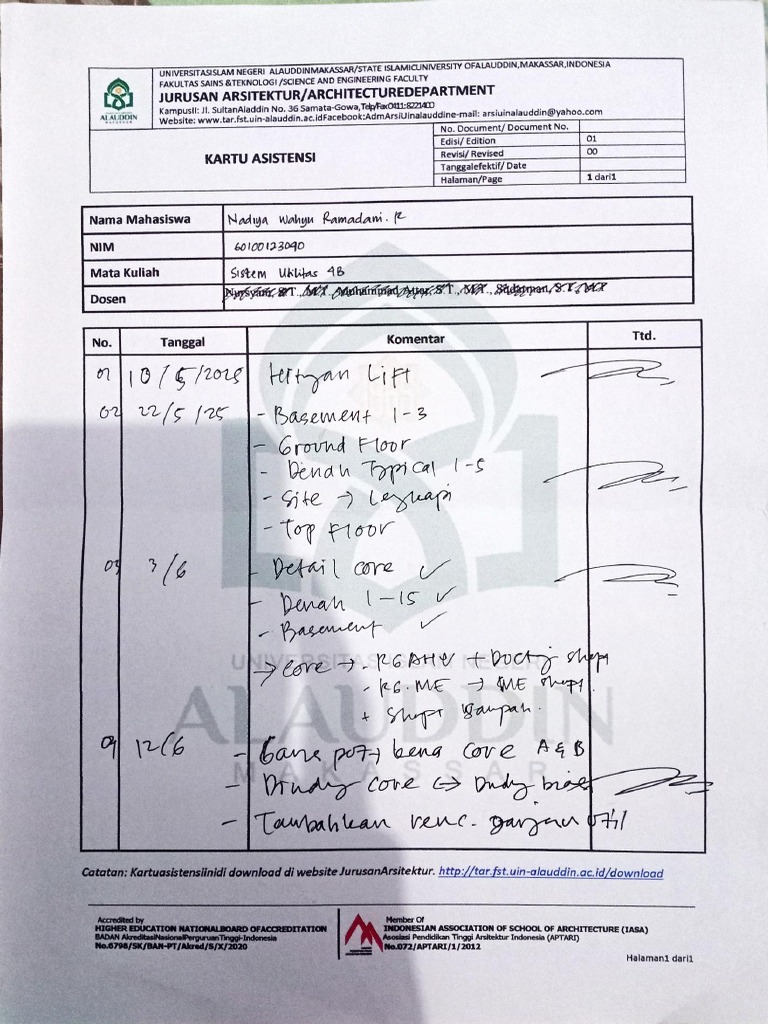 UNIVERSITASISLAM NEGERI ALAUDDINMAKASSAR/STATE ISLAMICUNIVERSITY OFALAUDDIN,MAKASSAR,INDONESIA
FAKULTAS SAINS &TEKNOLOGI /SCIENCE AND ENGINEERING FACULTY
JURUSAN ARSITEKTUR/ARCHITECTUREDEPARTMENT
KampusII: Jl. SultanAladdin No. 36 Samata-Gowa,Telp/Fax0411-8221400
Website: www.tar.fst.uin-alauddin.ac.idFacebook:AdmArsiUinalauddine-mail: arsiuinalauddin@yahoo.com
ALAUDDIN
KARTU ASISTENSI
No. Document/ Document No.
Edisi/ Edition 01
Revisi/ Revised 00
Tanggalefektif/ Date
Halaman/Page 1 dari1
Nama Mahasiswa Nadiya Wahyu Ramadani. R
NIM 60100123090
Mata Kuliah Sistem Utilitas 4B
Dosen
No. Tanggal Komentar Ttd.
01 10/5/2025 Lift
02 22/5/25 - Basement 1-3
- Ground Floor
- Denah Typical 1-5
- Site → Lengkapi
- Top Floor
03 3/6 - Detail core ✓
- Denah 1-15 ✓
- Basement ✓
→ core → - RG AHU +
- RG. ME → ME
+ sampah.
04 12/6 - core A & B
- core ↔
- Tambahkan renc.
UNIVERSITAS ISLAM NEGERI
ALAUDDIN
MAKASSAR
Catatan: Kartuasistensiinidi download di website JurusanArsitektur. http://tar.fst.uin-alauddin.ac.id/download
Accredited by
HIGHER EDUCATION NATIONALBOARD OFACCREDITATION
BADAN AkreditasiNasionalPerguruanTinggi-Indonesia
No.6798/SK/BAN-PT/Akred/S/X/2020
Member Of
INDONESIAN ASSOCIATION OF SCHOOL OF ARCHITECTURE (IASA)
Asosiasi Pendidikan Tinggi Arsitektur Indonesia (APTARI)
No.072/APTARI/1/2012
Halaman1 dari1